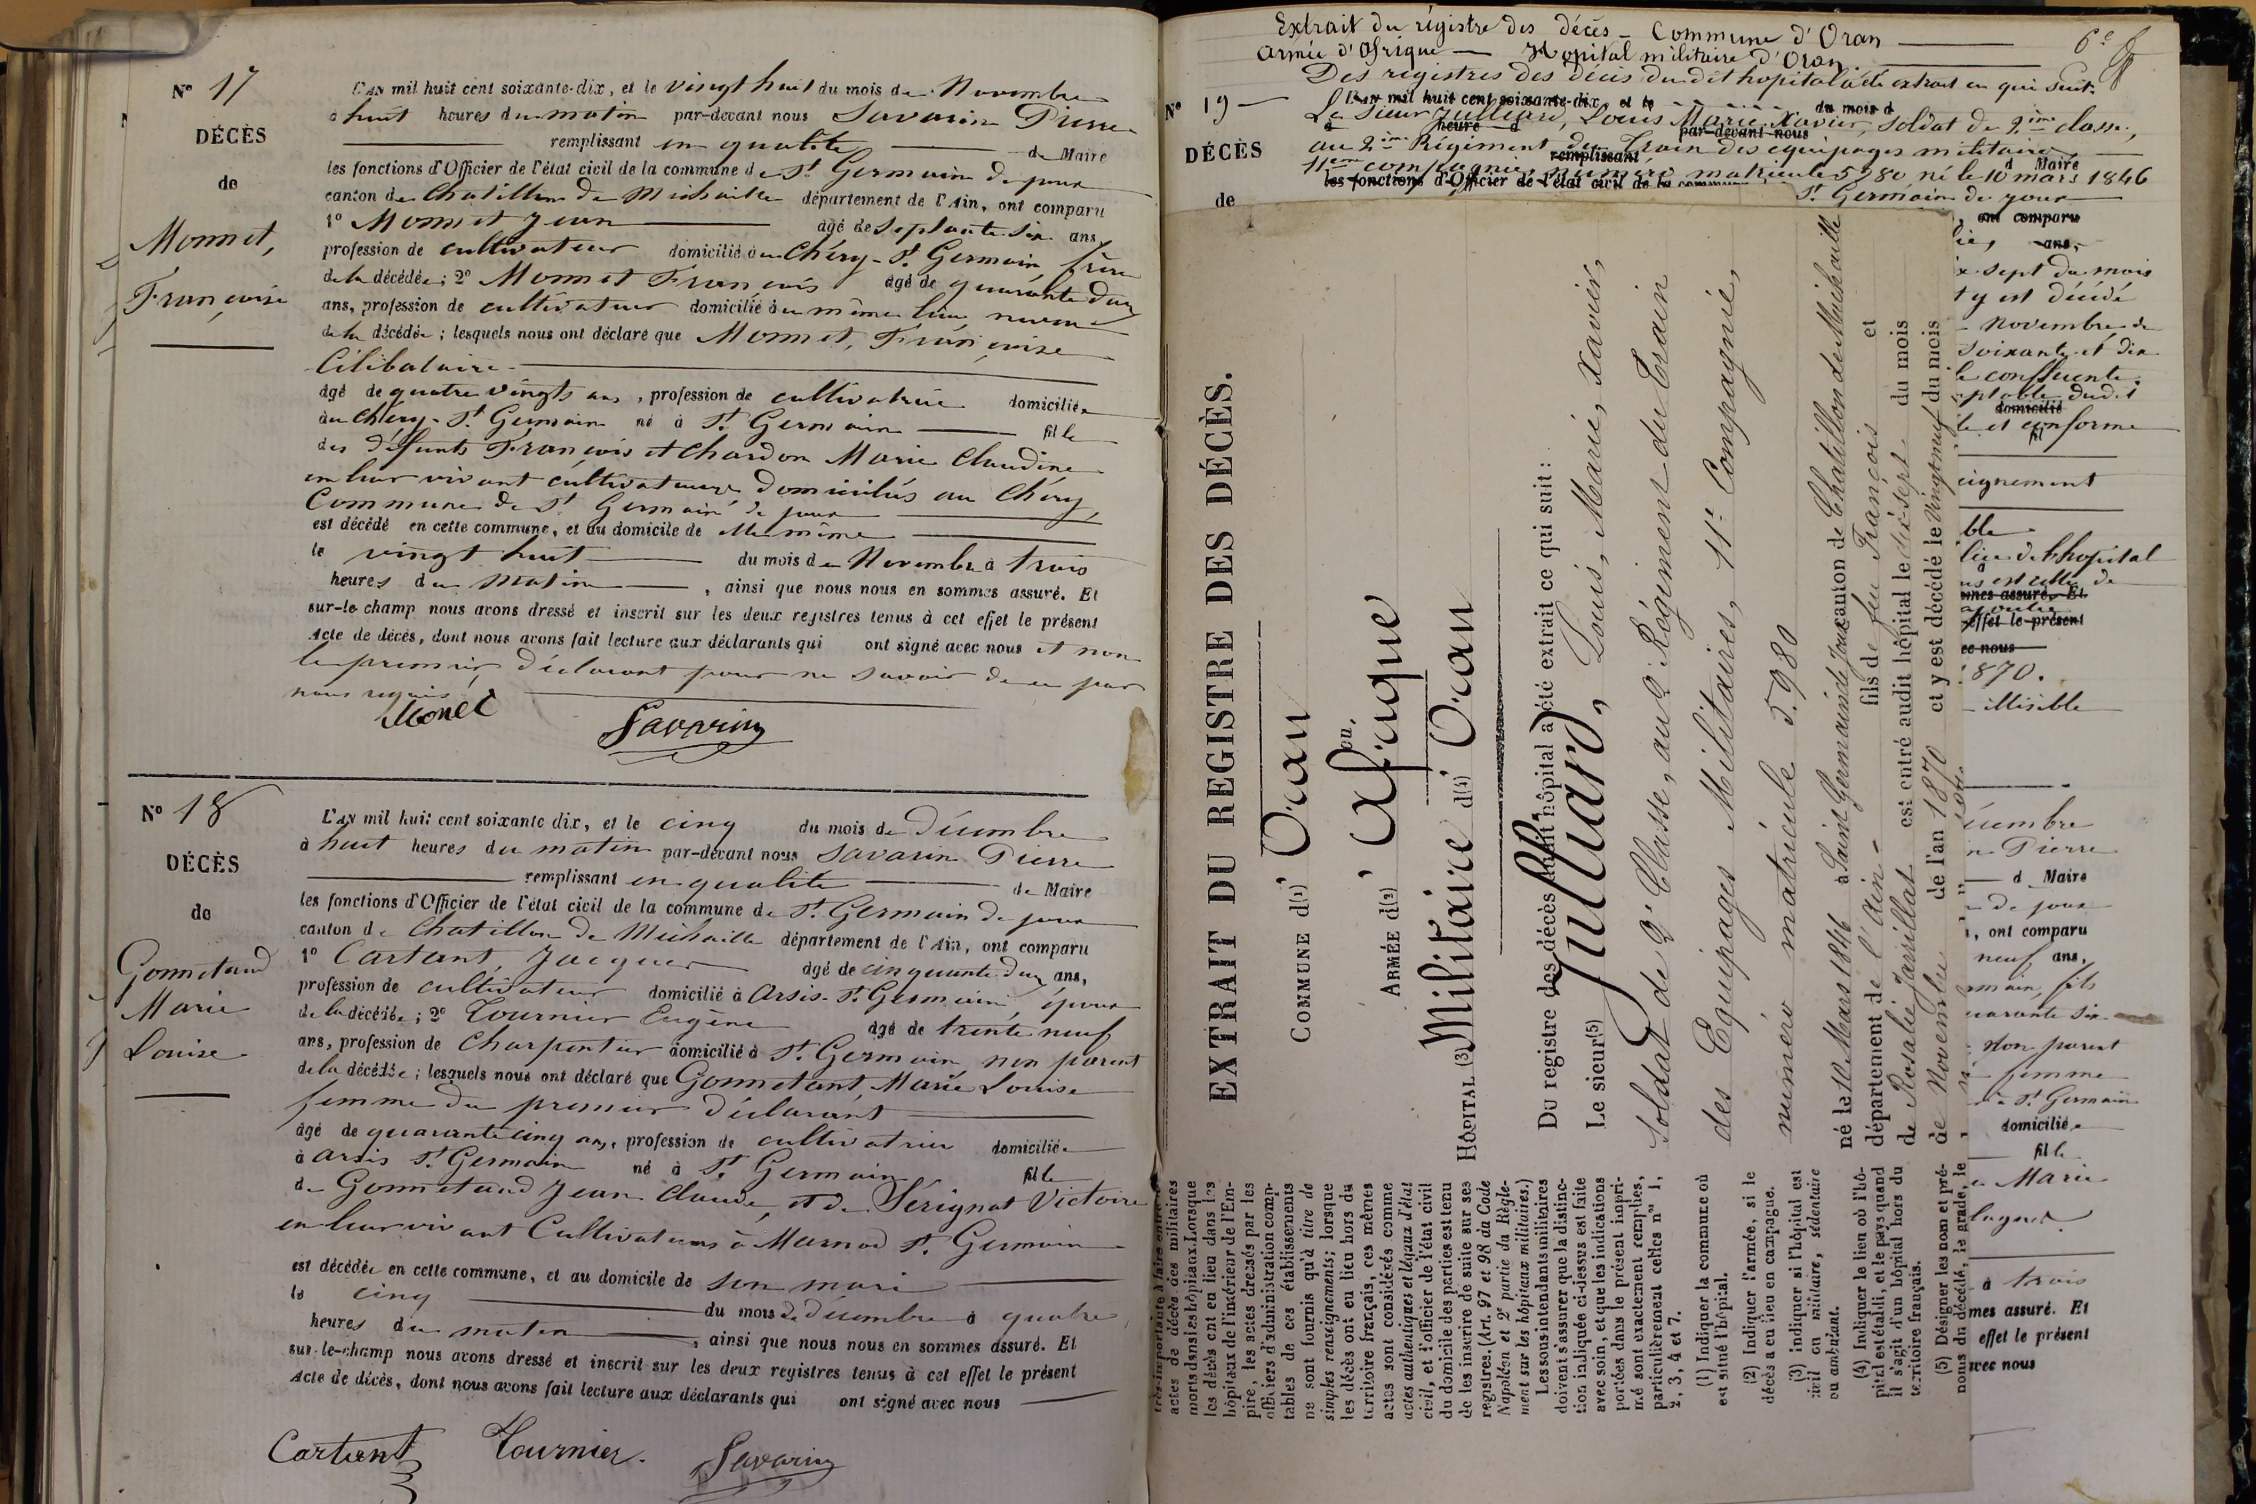 N° 17
DÉCÈS
de
Monnet,
Françoise
L'AN mil huit cent soixante-dix, et le vingt huit du mois de Novembre
à huit heures du matin par-devant nous Savarin Pierre
remplissant en qualité de Maire
les fonctions d'Officier de l'état civil de la commune de St Germain de joux
canton de Chatillon de Michaille département de l'Ain, ont comparu
1° Monnet Jean âgé de septante six ans,
profession de cultivateur domicilié au Chéry-St Germain, frère
de la décédée; 2° Monnet François âgé de quarante deux
ans, profession de cultivateur domicilié au même lieu neveu
de la décédée; lesquels nous ont déclaré que Monnet, Françoise
Célibataire
âgé de quatre vingts ans, profession de cultivatrice domiciliée
au Chéry-St Germain né à St Germain fille
des défunts François et Chardon Marie Claudine
en leur vivant cultivateurs domiciliés au Chéry,
Commune de St Germain de joux
est décédé en cette commune, et au domicile de elle même
le vingt huit du mois de Novembre à trois
heures du matin, ainsi que nous nous en sommes assuré. Et
sur-le-champ nous avons dressé et inscrit sur les deux registres tenus à cet effet le présent
Acte de décès, dont nous avons fait lecture aux déclarants qui ont signé avec nous et non
le premier déclarant pour ne savoir de ce par
nous requis
Monet Savarin
N° 18
DÉCÈS
de
Gonnetand
Marie
Louise
L'AN mil huit cent soixante dix, et le cinq du mois de Décembre
à huit heures du matin par-devant nous Savarin Pierre
remplissant en qualité de Maire
les fonctions d'Officier de l'état civil de la commune de St Germain de joux
canton de Chatillon de Michaille département de l'Ain, ont comparu
1° Cartant, Jacques âgé de cinquante deux ans,
profession de cultivateur domicilié à Arsis-St Germain époux
de la décédée; 2° Tournier Eugène âgé de trente neuf
ans, profession de Charpentier domicilié à St Germain, non parent
de la décédée; lesquels nous ont déclaré que Gonnetant, Marie Louise
femme du premier déclarant
âgé de quarante cinq ans, profession de cultivatrice domiciliée
à Arsis St Germain né à St Germain fille
de Gonnetand Jean Claude, et de Sérignat Victoire
en leur vivant Cultivateurs à Marnod St Germain
est décédée en cette commune, et au domicile de son mari
le cinq du mois de décembre à quatre
heures du matin, ainsi que nous nous en sommes assuré. Et
sur-le-champ nous avons dressé et inscrit sur les deux registres tenus à cet effet le présent
Acte de décès, dont nous avons fait lecture aux déclarants qui ont signé avec nous
Cartant Tournier. Savarin
Extrait du régistre des décès - Commune d'Oran
Armée d'Afrique - Hopital militaire d'Oran
Des régistres des décès dudit hopital a été extrait ce qui suit.
N° 19
DÉCÈS
de
L'AN mil huit cent soixante-dix, et le du mois d
Le Sieur Julliard, Louis Marie Xavier, soldat de 2ime classe,
à heure d par-devant nous
au 2ime Régiment du Train des équipages militaires,
remplissant d Maire
11eme compagnie, numéro matricule 5980 né le 10 mars 1846
les fonctions d'Officier de l'état civil de la commune
St Germain de joux
, ont comparu
ans,
sept du mois
t y est décédé
Novembre de
soixante et dix
confluente.
ptable dudit
domicilié
le et conforme
fil
eignement
ble
de l'hopital
est celle de
mes assuré. Et
effet le présent
ec nous
1870.
illisible
EXTRAIT DU REGISTRE DES DÉCÈS.
COMMUNE d(1)' Oran
ou
ARMÉE d(2)' Afrique
HÔPITAL (3) Militaire d(4)' Oran
Du registre des décès dudit hôpital a été extrait ce qui suit:
Le sieur(5) Julliard, Louis, Marie, Xavier,
soldat de 2e Classe, au 2e Régiment du Train
des Equipages Militaires, 11e Compagnie,
numéro matricule 5.980
né le 10 Mars 1846 à Saint Germain de Joux canton de Chatillon de Michaille
département de l'Ain - fils de feu François et
de Rosalie Jarillat est entré audit hôpital le dixsept du mois
de Novembre de l'an 1870 et y est décédé le Vingt neuf du mois
actes de décès des militaires
morts dans les hôpitaux. Lorsque
les décès ont eu lieu dans les
hôpitaux de l'intérieur de l'Em-
pire, les actes dressés par les
officiers d'administration comp-
tables de ces établissements
ne sont fournis qu'à titre de
simples renseignements; lorsque
les décès ont eu lieu hors du
territoire français, ces mêmes
actes sont considérés comme
actes authentiques et légaux d'état
civil, et l'officier de l'état civil
du domicile des parties est tenu
de les inscrire de suite sur ses
registres. (Art. 97 et 98 du Code
Napoléon et 2e partie du Règle-
ment sur les hôpitaux militaires.)
Les sous-intendants militaires
doivent s'assurer que la distinc-
tion indiquée ci-dessus est faite
avec soin, et que les indications
portées dans le présent impri-
mé sont exactement remplies,
particulièrement celles nos 1,
2, 3, 4 et 7.
(1) Indiquer la commune où
est situé l'hôpital.
(2) Indiquer l'armée, si le
décès a eu lieu en campagne.
(3) Indiquer si l'hôpital est
civil ou militaire, sédentaire
ou ambulant.
(4) Indiquer le lieu où l'hô-
pital est établi, et le pays quand
il s'agit d'un hôpital hors du
territoire français.
(5) Désigner les nom et pré-
noms du décédé, le grade, le
cembre
n Pierre
d Maire
de joux
, ont comparu
neuf ans,
rmain, fils
uarante six
Non parent
femme
à St Germain
domiciliée
fille
Marie
à trois
mes assuré. Et
effet le présent
avec nous